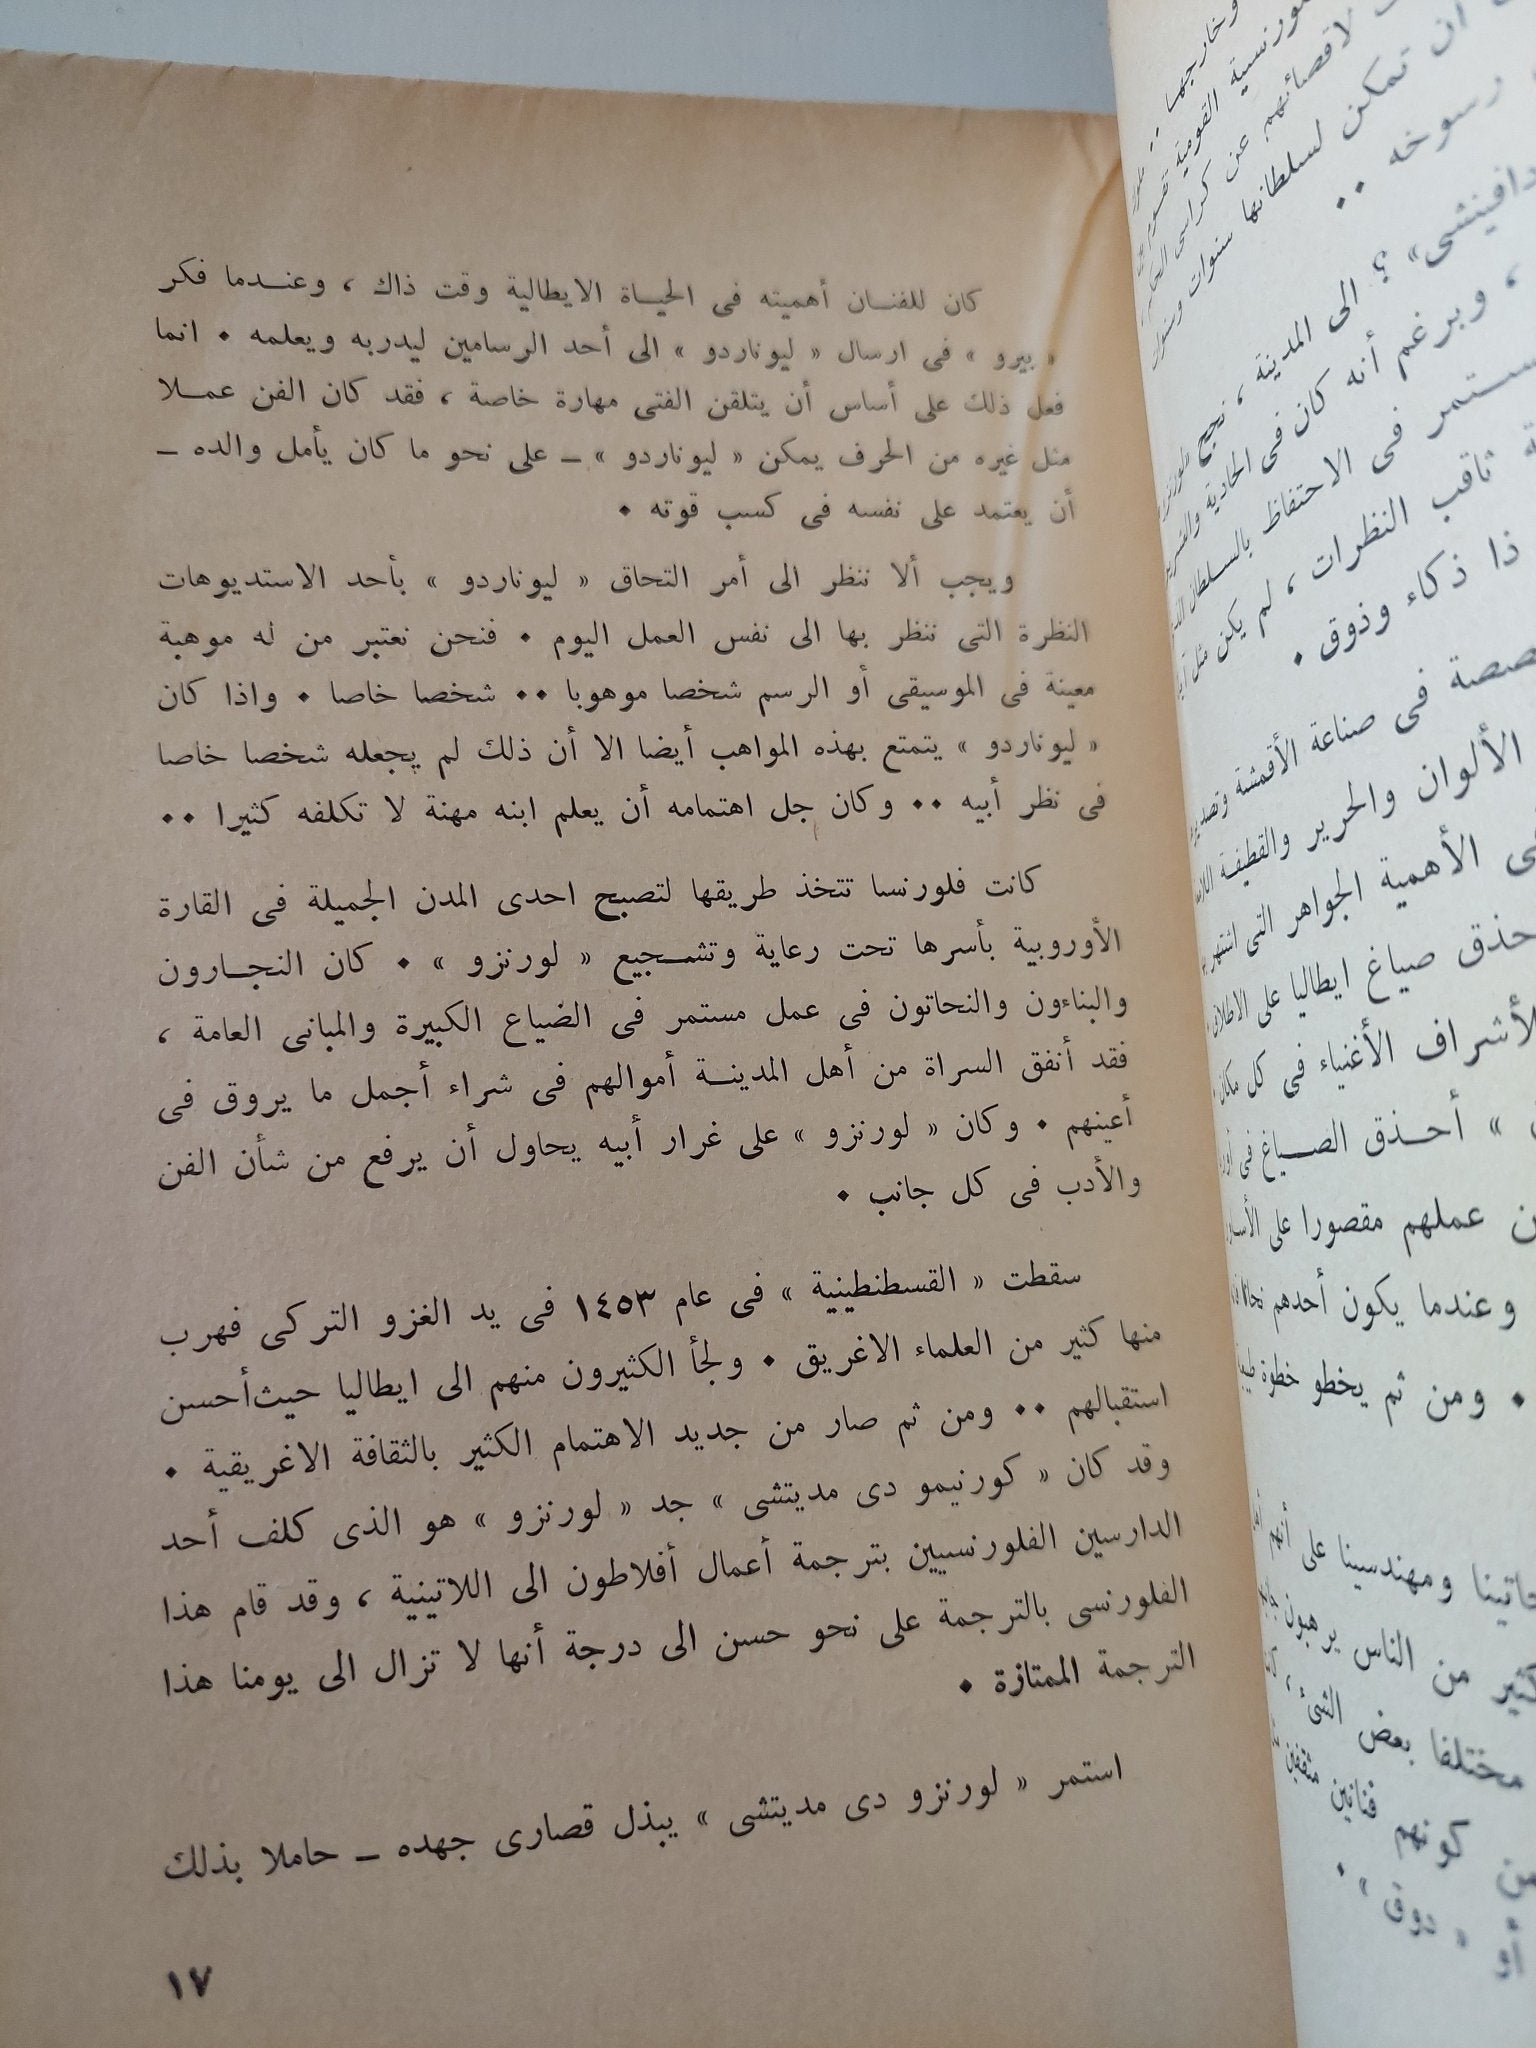 كان للفنـــان أهميته فى الحيـــاة الايطالية وقت ذاك ، وعنـــدما فكر
« بيرو » فى ارسال « ليوناردو » الى أحد الرسامين ليدربه ويعلمه • انما
فعل ذلك على أساس أن يتلقن الفتى مهارة خاصة ، فقد كان الفن عمـــلا
مثل غيره من الحرف يمكن « ليوناردو » ــ على نحو ما كان يأمل والده ــ
أن يعتمد على نفسه فى كسب قوته •
ويجب ألا ننظر الى أمر التحاق « ليوناردو » بأحد الاستديوهات
النظرة التى ننظر بها الى نفس العمل اليوم • فنحن نعتبر من له موهبة
معينة فى الموسيقى أو الرسم شخصا موهوبا •• شخصا خاصا • واذا كان
« ليوناردو » يتمتع بهذه المواهب أيضا الا أن ذلك لم يجعله شخصا خاصا
فى نظر أبيه •• وكان جل اهتمامه أن يعلم ابنه مهنة لا تكلفه كثيرا ••
كانت فلورنسا تتخذ طريقها لتصبح احدى المدن الجميلة فى القارة
الأوروبية بأسرها تحت رعاية وتشـــجيع « لورنزو » • كان النجـــارون
والبناءون والنحاتون فى عمل مستمر فى الضياع الكبيرة والمبانى العامة ،
فقد أنفق السراة من أهل المدينـــة أموالهم فى شراء أجمل ما يروق فى
أعينهم • وكان « لورنزو » على غرار أبيه يحاول أن يرفع من شأن الفن
والأدب فى كل جانب •
سقطت « القسطنطينية » فى عام ١٤٥٣ فى يد الغزو التركى فهرب
منها كثير من العلماء الاغريق • ولجأ الكثيرون منهم الى ايطاليا حيث أحسن
استقبالهم •• ومن ثم صار من جديد الاهتمام الكثير بالثقافة الاغريقية •
وقد كان « كورنيمو دى مديتشى » جد « لورنزو » هو الذى كلف أحد
الدارسين الفلورنسيين بترجمة أعمال أفلاطون الى اللاتينية ، وقد قام هذا
الفلورنسى بالترجمة على نحو حسن الى درجة أنها لا تزال الى يومنا هذا
الترجمة الممتازة •
استمر « لورنزو دى مديتشى » يبذل قصارى جهده ــ حاملا بذلك
١٧
وخارجها ••
القومية
لاقصائهم عن كراسى
أن تمكن لسلطانها سنوات وسنوات
رسوخه ••
دافينشى» ؟ الى المدينة ، نجح
، وبرغم أنه كان فى الحادية
فى الاحتفاظ بالسلطان
ثاقب النظرات ، لم يكن مثل
ذا ذكاء وذوق •
فى صناعة الأقمشة
الألوان والحرير والقطيفة
الأهمية الجواهر التى اشتهر
حذق صياغ ايطاليا على الاطلاق
الأشراف الأغنياء فى كل مكان
» أحـــذق الصـــياغ فى
عملهم مقصورا على
وعندما يكون أحدهم
• ومن ثم يخطو خطوة
ومهندسينا على أنهم
من الناس يرهبون
مختلفا بعض الشئ ،
كونهم فنانين مثقفين
أو « دوق » •